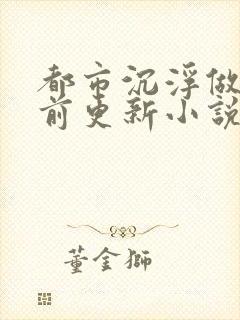 都市沉浮做
前更新小說
董金獅